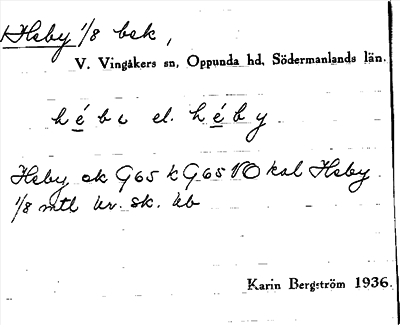 Hsby 1/8 bsk,
V. Vingåkers sn, Oppunda hd, Södermanlands län.
hébe el. héby
Hsby ek G65 k G65 NO kal Hsby
1/8 mtl kr. sk. kb
Karin Bergström 1936.